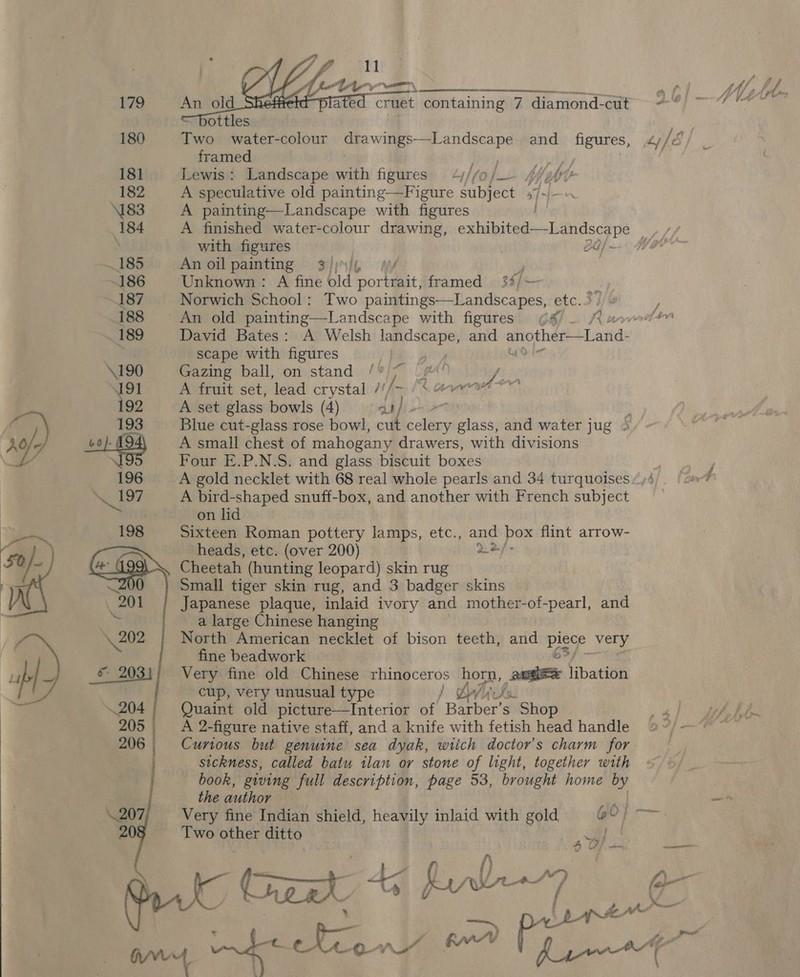 11
179 An old Sheffield-plated cruet containing 7 diamond-cut
bottles
180 Two water-colour drawings—Landscape and figures,
framed
181 Lewis: Landscape with figures
182 A speculative old painting—Figure subject
183 A painting—Landscape with figures
184 A finished water-colour drawing, exhibited—Landscape
with figures
185 An oil painting
186 Unknown: A fine old portrait, framed
187 Norwich School: Two paintings—Landscapes, etc.
188 An old painting—Landscape with figures
189 David Bates: A Welsh landscape, and another—Land-
scape with figures
190 Gazing ball, on stand
191 A fruit set, lead crystal
192 A set glass bowls (4)
193 Blue cut-glass rose bowl, cut celery glass, and water jug
20/- 60/- 194 A small chest of mahogany drawers, with divisions
195 Four E.P.N.S. and glass biscuit boxes
196 A gold necklet with 68 real whole pearls and 34 turquoises
197 A bird-shaped snuff-box, and another with French subject
on lid
198 Sixteen Roman pottery lamps, etc., and box flint arrow-
heads, etc. (over 200) 22/-
50/- 199 Cheetah (hunting leopard) skin rug
200 Small tiger skin rug, and 3 badger skins
201 Japanese plaque, inlaid ivory and mother-of-pearl, and
a large Chinese hanging
202 North American necklet of bison teeth, and piece very
fine beadwork
203 Very fine old Chinese rhinoceros horn, libation
cup, very unusual type
204 Quaint old picture—Interior of Barber's Shop
205 A 2-figure native staff, and a knife with fetish head handle
206 Curious but genuine sea dyak, witch doctor's charm for
sickness, called batu ilan or stone of light, together with
book, giving full description, page 53, brought home by
the author
207 Very fine Indian shield, heavily inlaid with gold 60/-
208 Two other ditto